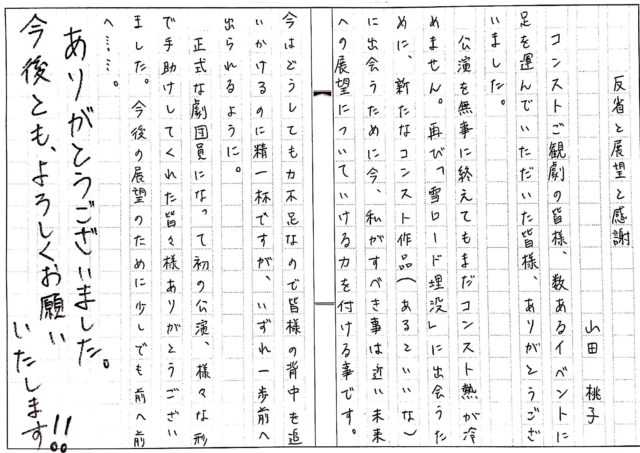 反省と展望と感謝
山田 桃子
コンストご観劇の皆様、数あるイベントに
足を運んでいただいた皆様、ありがとうござ
いました。
公演を無事に終えてもまだコンスト熱が冷
めません。再び「雪ロード埋没」に出会うた
めに、新たなコンスト作品(あるといいな)
に出会うために今、私がすべき事は近い未来
への展望についていける力を付ける事です。
今はどうしても力不足なので皆様の背中を追
いかけるのに精一杯ですが、いずれ一歩前へ
出られるように。
正式な劇団員になって初の公演、様々な形
で手助けしてくれた皆々様ありがとうござい
ました。今後の展望のために少しでも前へ前
へ……。
ありがとうございました。
今後とも、よろしくお願い
いたします!!